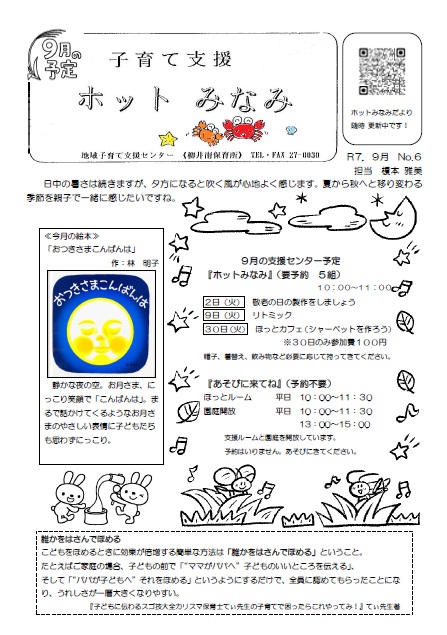 9月の
予定
子育て支援
ホット みなみ
地域子育て支援センター 《柳井南保育所》 TEL・FAX 27-0030
ホットみなみだより
随時 更新中です！
R7．9月 No.6
担当 榎本 雅美
日中の暑さは続きますが、夕方になると吹く風が心地よく感じます。夏から秋へと移り変わる
季節を親子で一緒に感じたいですね。
≪今月の絵本≫
「おつきさまこんばんは」
作：林 明子
おつきさまこんばんは
静かな夜の空。お月さま、に
っこり笑顔で「こんばんは」。ま
るで話かけてくるようなお月さ
まのやさしい表情に子どもたち
も思わずにっこり。
9月の支援センター予定
『ホットみなみ』（要予約 5組）
10：00～11：00
2日（火） 敬老の日の製作をしましょう
9日（火） リトミック
30日（火） ほっとカフェ（シャーベットを作ろう）
※30日のみ参加費100円
帽子、着替え、飲み物など必要に応じて持ってきてください。
『あそびに来てね』（予約不要）
ほっとルーム 平日 10：00～11：30
園庭開放 平日 10：00～11：30
13：00～15：00
支援ルームと園庭を開放しています。
予約はいりません。あそびにきてください。
誰かをはさんでほめる
こどもをほめるときに効果が倍増する簡単な方法は「誰かをはさんでほめる」ということ。
たとえばご家庭の場合、子どもの前で「"ママがパパへ"子どものいいところを伝える」、
そして「"パパが子どもへ"それをほめる」というようにするだけで、全員に認めてもらったことにな
り、うれしさが一層大きくなりやすい。
『子どもに伝わるスゴ技大全カリスマ保育士てぃ先生の子育てで困ったらこれやってみ！』てぃ先生著